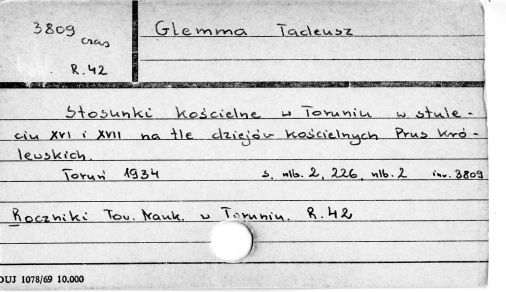 3809 Glemma Tadeusz
czas
R.42
Stosunki kościelne w Toruniu w stule-
ciu XVI i XVII na tle dziejów kościelnych Prus Kró-
lewskich.
Toruń 1934 s. nlb. 2, 226, nlb. 2 inw. 3809
Roczniki Tow. Nauk. w Toruniu. R.42
DUJ 1078/69 10.000